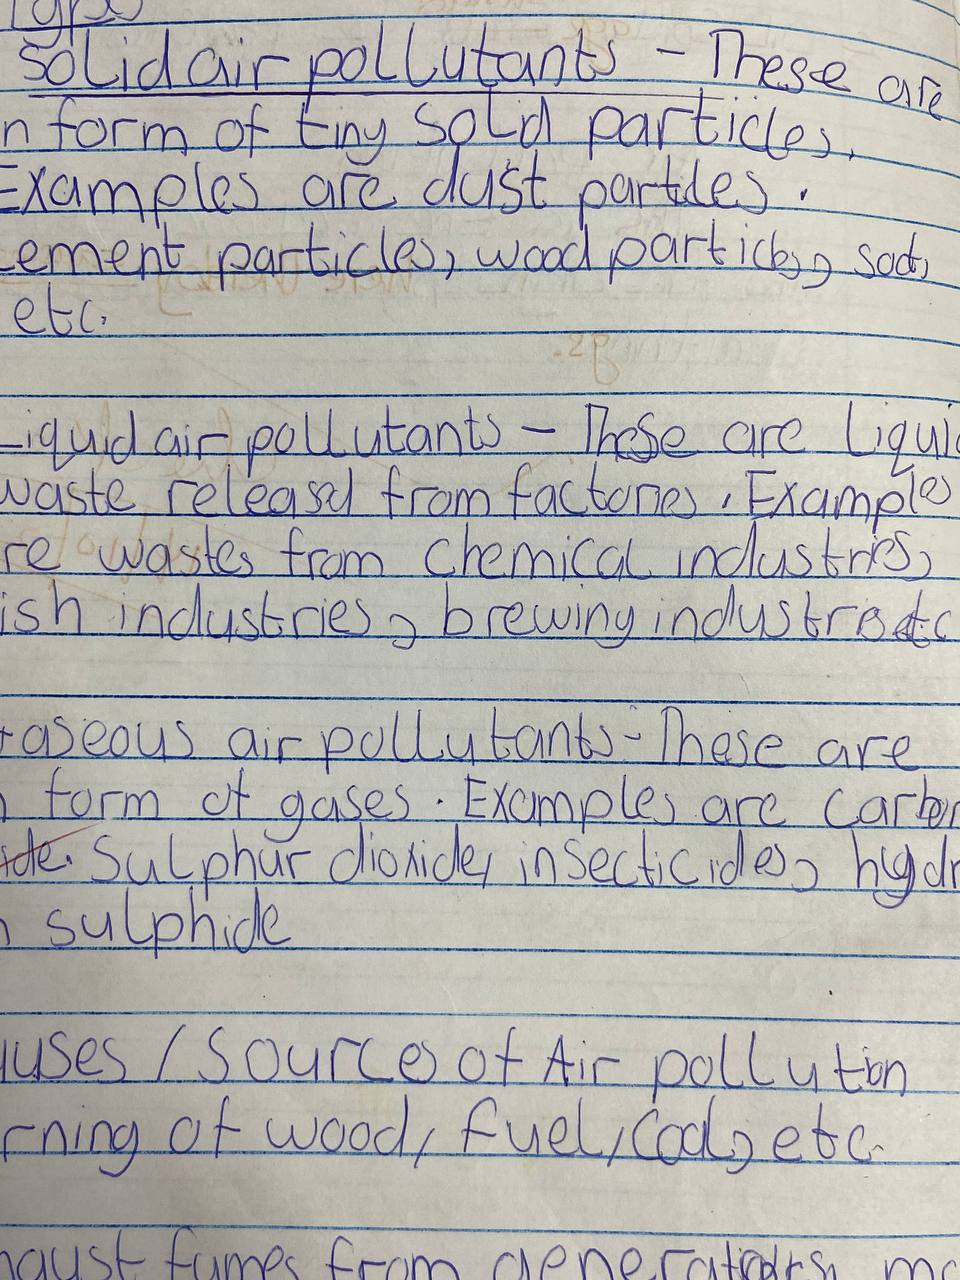 Types
Solid air pollutants - These are
n form of tiny solid particles.
Examples are dust particles.
cement particles, wood particles, soot,
etc.
Liquid air pollutants - These are liquid
waste released from factories. Examples
re wastes from chemical industries,
ish industries, brewing industries etc
aseous air pollutants - These are
n form of gases. Examples are carbon
ide. Sulphur dioxide, insecticides, hydr
n sulphide
auses / Sources of Air pollution
rning of wood, fuel, coal, etc.
haust fumes from generators, mo